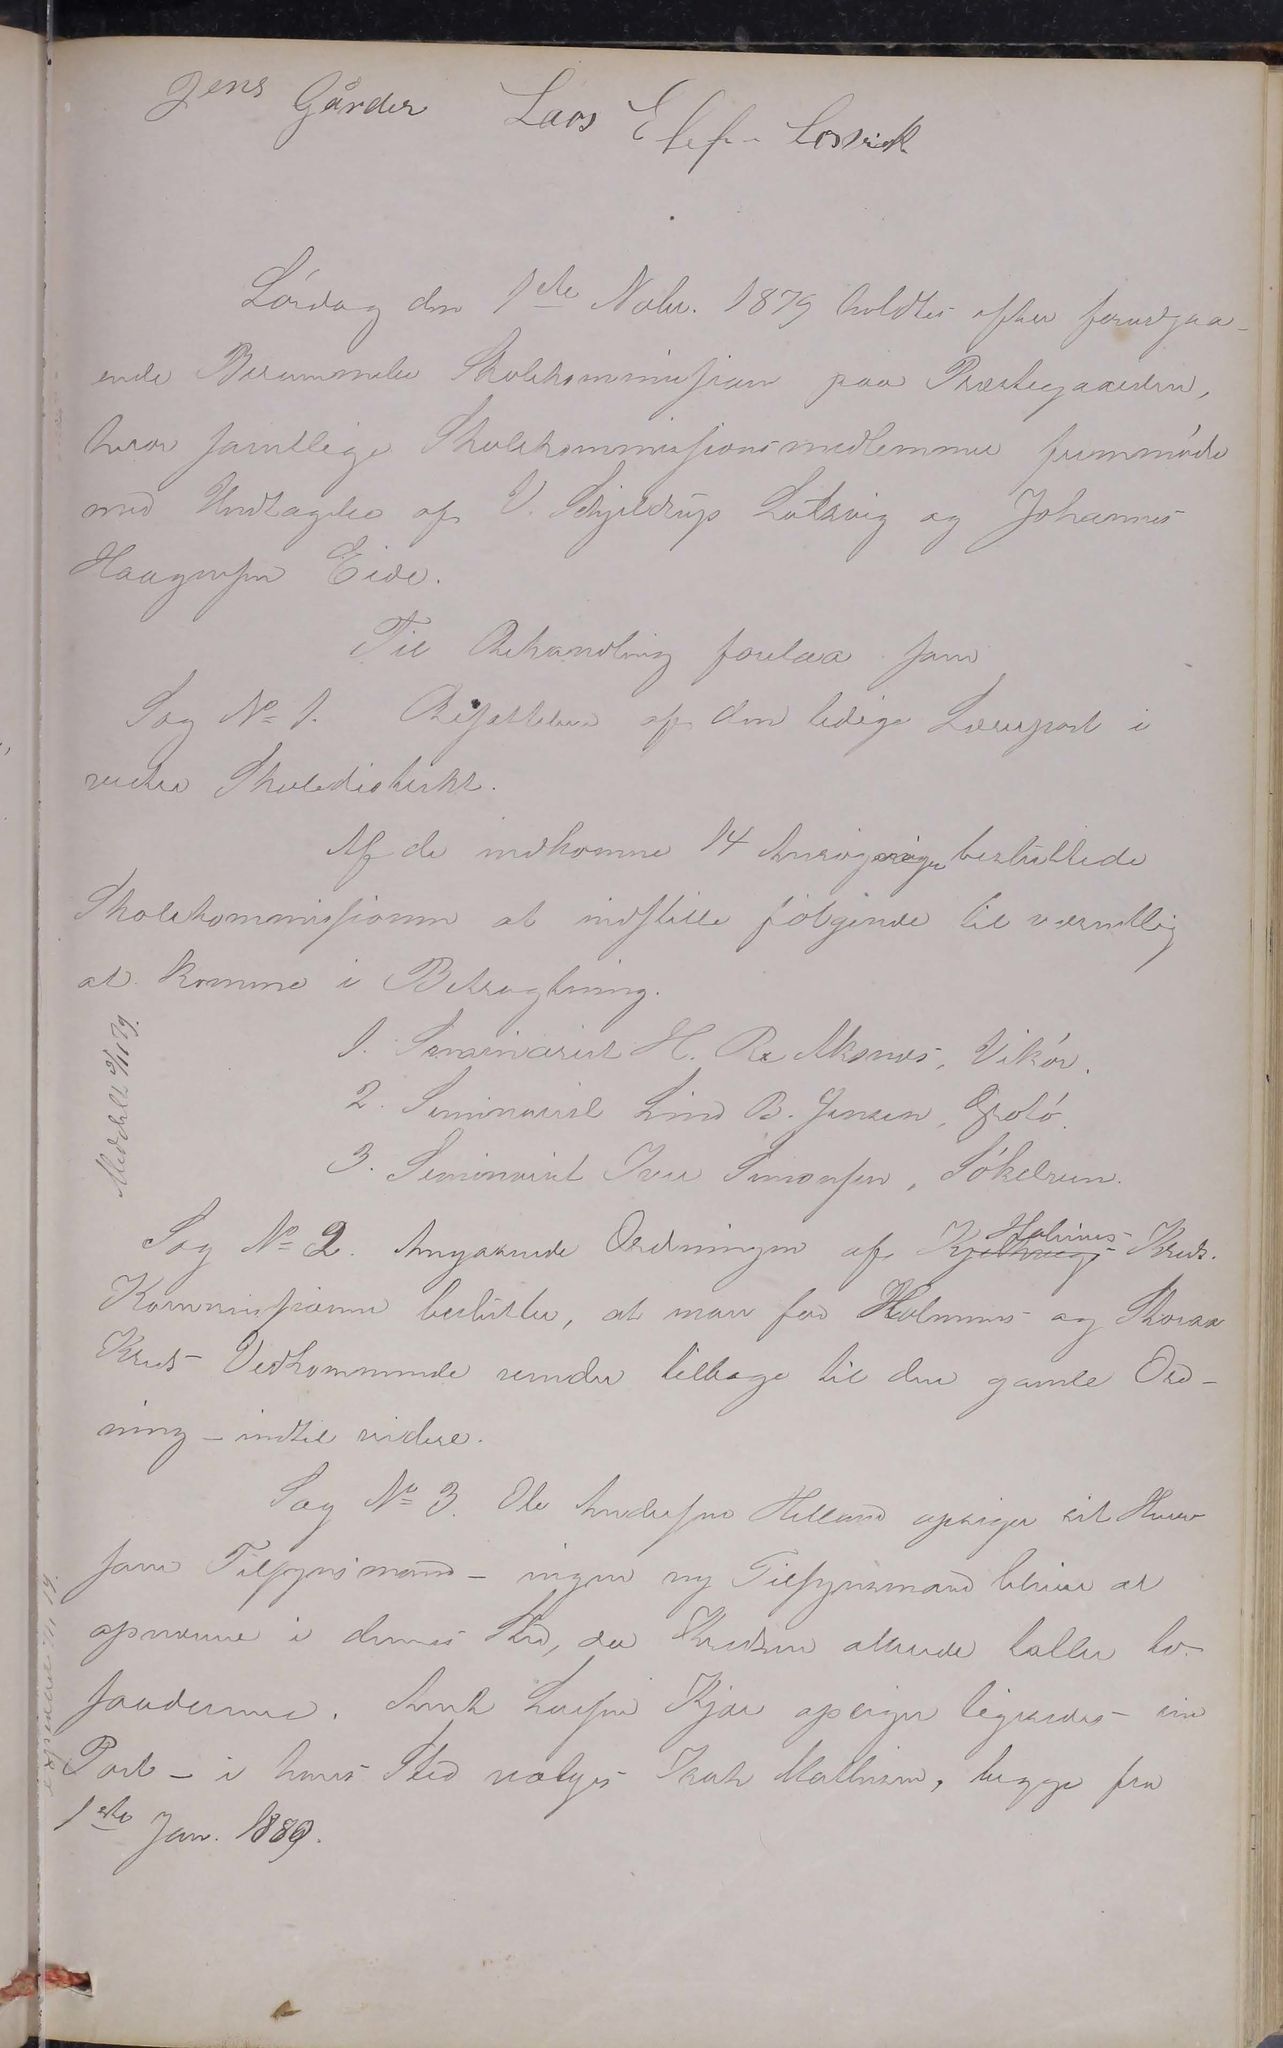 Jens Gårder Lars
Lørdag den 1ste Nobr. 1879 holdtes efter forudgaa-
ende Berammelse Skolekommission paa Præstegaarden,
hvor samtlige Skolekommissionsmedlemmer fremmødte
med Undtagelse af V. Schjeldrup Løtsvig og Johannes
Haagensen Eide.
Til Behandling forelaa som
Sag No 1. Besættelsen af den ledige Lærerpost i
nedre Skoledistrikt.
Af de indkomne 14 Ansøgninger besluttede
Skolekommissionen at indstille følgende til værnetlig
at komme i Betragtning.
1. Seminarist H. B. Aksnes, Vikør.
2. Seminarist Lind B. Jensen, Grøtø.
3. Seminarist Iver Simonsen, Søkelven.
Meddelt 2/11 79.
Sag No 2. Angaaende Ordningen af Holmnes Kreds.
Kommissionen beslutter, at man for Holmnes og Skoraa
Kreds Vedkommende vender tilbage til den gamle Ord-
ning – indtil videre.
Sag No 3. Ole Andersen Helland opsiger sit Hverv
som Tilsynsmand – ingen ny Tilsynsmand bliver at
opnævne i dennes Sted, da Kredsen allerede tæller to
saadanne. Larsen Kjær opsiger ligeledes sin
Post – i hans Sted vælges Isak Mathisen, begge fra
1ste Jan. 1880.